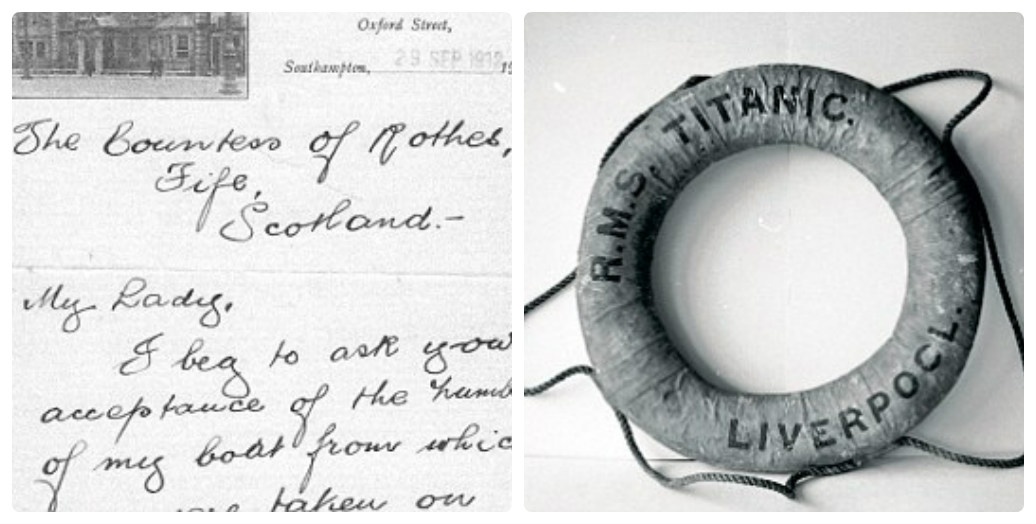 Oxford Street,
29 SEP 1912
Southampton, 19
The Countess of Rothes,
Fife,
Scotland.-
My Lady,
I beg to ask your
acceptance of the numb
of my boat from whic
taken on
R.M.S. TITANIC.
LIVERPOOL.